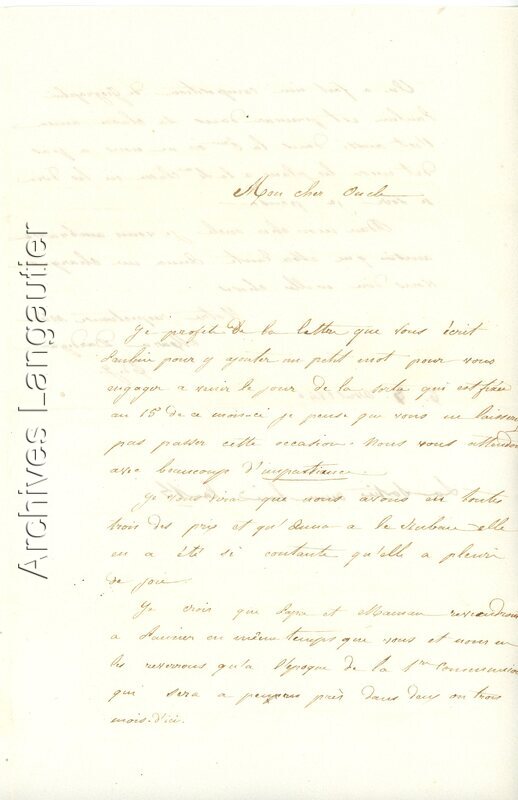 Archives Langautier
Mon cher Oncle
Je profite de la lettre que vous écrit
Pauline pour y ajouter un petit mot pour vous
engager a venir le jour de la sortie qui est fixée
au 15 de ce mois-ci je pense que vous ne laisserez
pas passer cette occasion. Nous vous attendons
avec beaucoup d'impatience.
Je vous dirai que nous avons eu toutes
trois des prix et qu'Anna a le Rubau elle
en a été si contante qu'elle a pleuré
de joie.
Je crois que Papa et Maman reviendront
a en même temps que vous et nous ne
les reverrons qu'a l'époque de la 1re Communion
qui sera a peu près dans deux ou trois
mois d'ici.